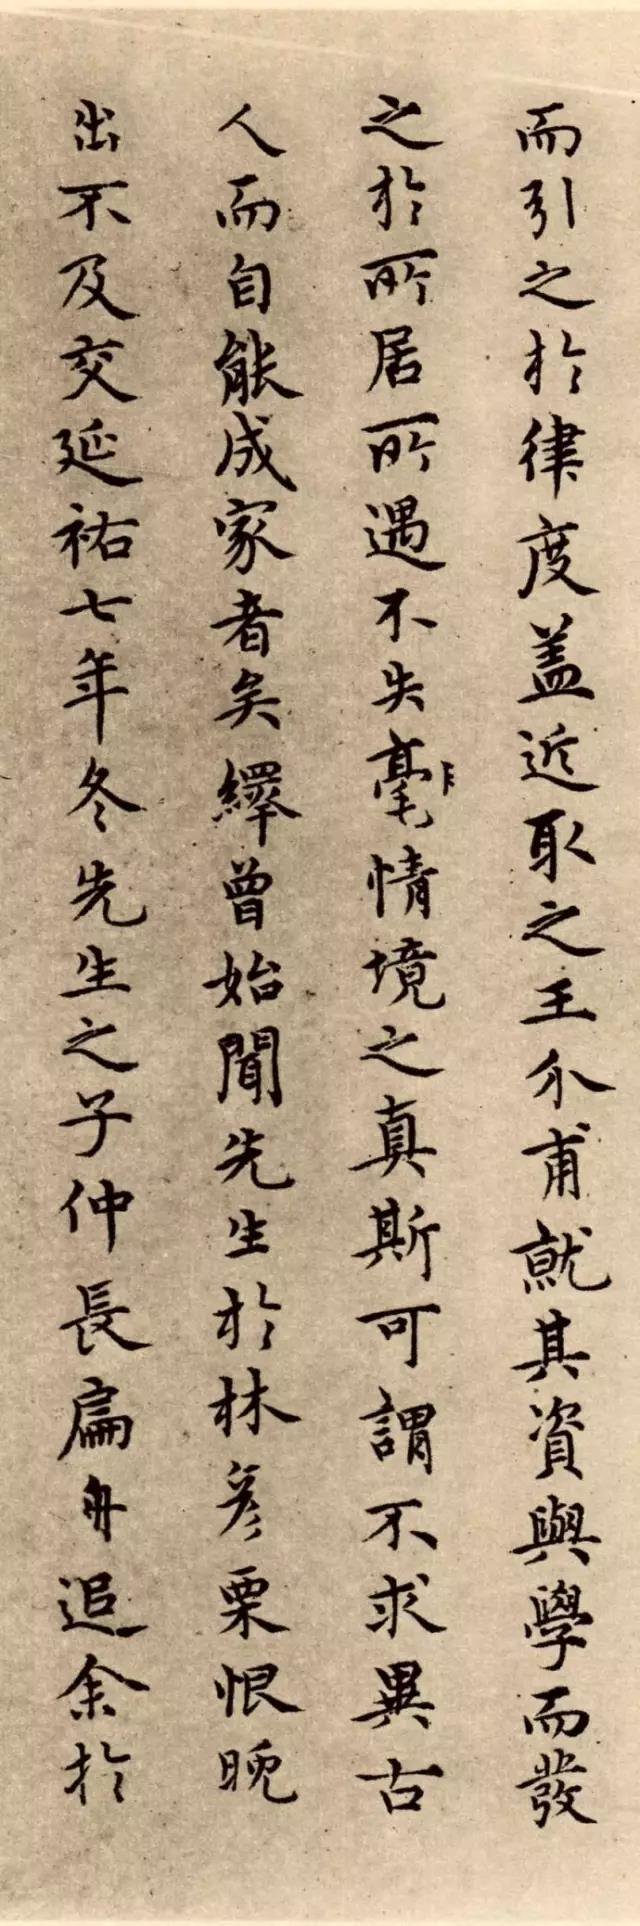 而引之於律度盖近取之王介甫就其資與學而發
之於所居所遇不失毫情境之真斯可謂不求異古
人而自能成家者矣繹曾始聞先生於林彦栗恨晚
出不及交延祐七年冬先生之子仲長扁舟追余於